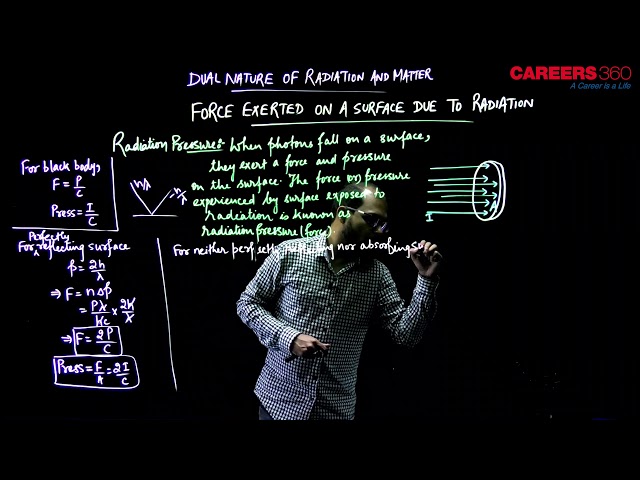 CAREERS360
A Career is a Life
DUAL NATURE OF RADIATION AND MATTER
FORCE EXERTED ON A SURFACE DUE TO RADIATION
Radiation Pressure:- When photons fall on a surface,
they exert a force and pressure
on the surface. The force or pressure
experienced by surface exposed to
radiation is known as
radiation pressure (force)
For black body,
F = P/C
Press = I/C
h/λ
-h/λ
I
Perfectly
For reflecting surface
p = 2h/λ
⇒ F = n Δp
= Pλ/hc × 2h/λ
⇒ F = 2P/C
Press = F/A = 2I/C
For neither perfectly nor absorbing